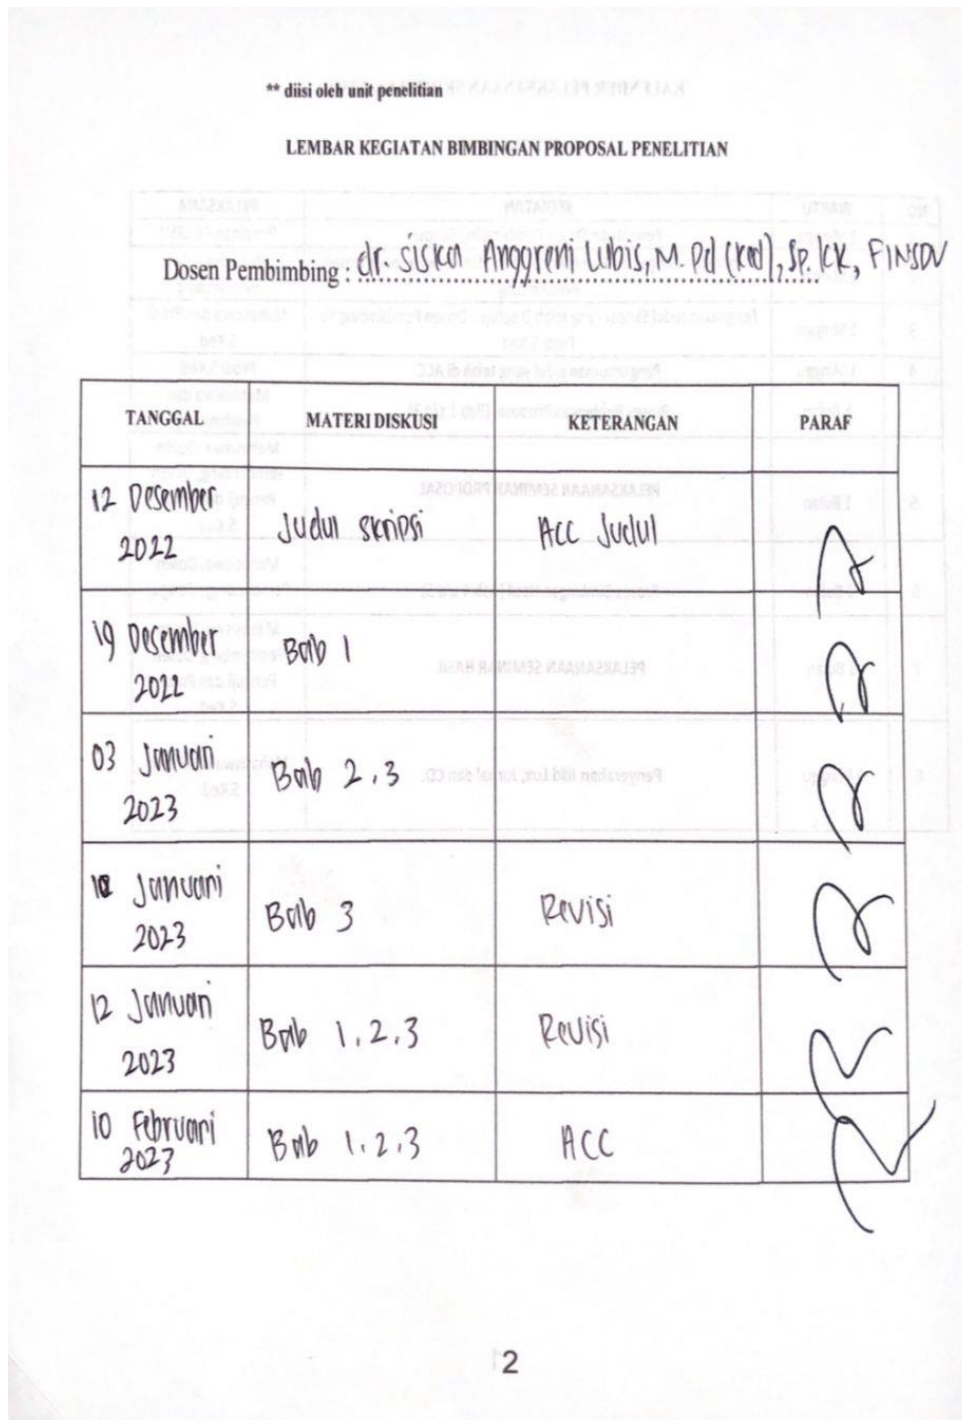 ** diisi oleh unit penelitian
LEMBAR KEGIATAN BIMBINGAN PROPOSAL PENELITIAN
Dosen Pembimbing : dr. Siska Anggreni Lubis, M. Pd (Ked), Sp. KK, FINSDV
TANGGAL MATERI DISKUSI KETERANGAN PARAF
12 Desember
2022
Judul skripsi
Acc Judul
19 Desember
2022
Bab 1
03 Januari
2023
Bab 2,3
10 Januari
2023
Bab 3
Revisi
12 Januari
2023
Bab 1,2,3
Revisi
10 Februari
2023
Bab 1,2,3
ACC
2